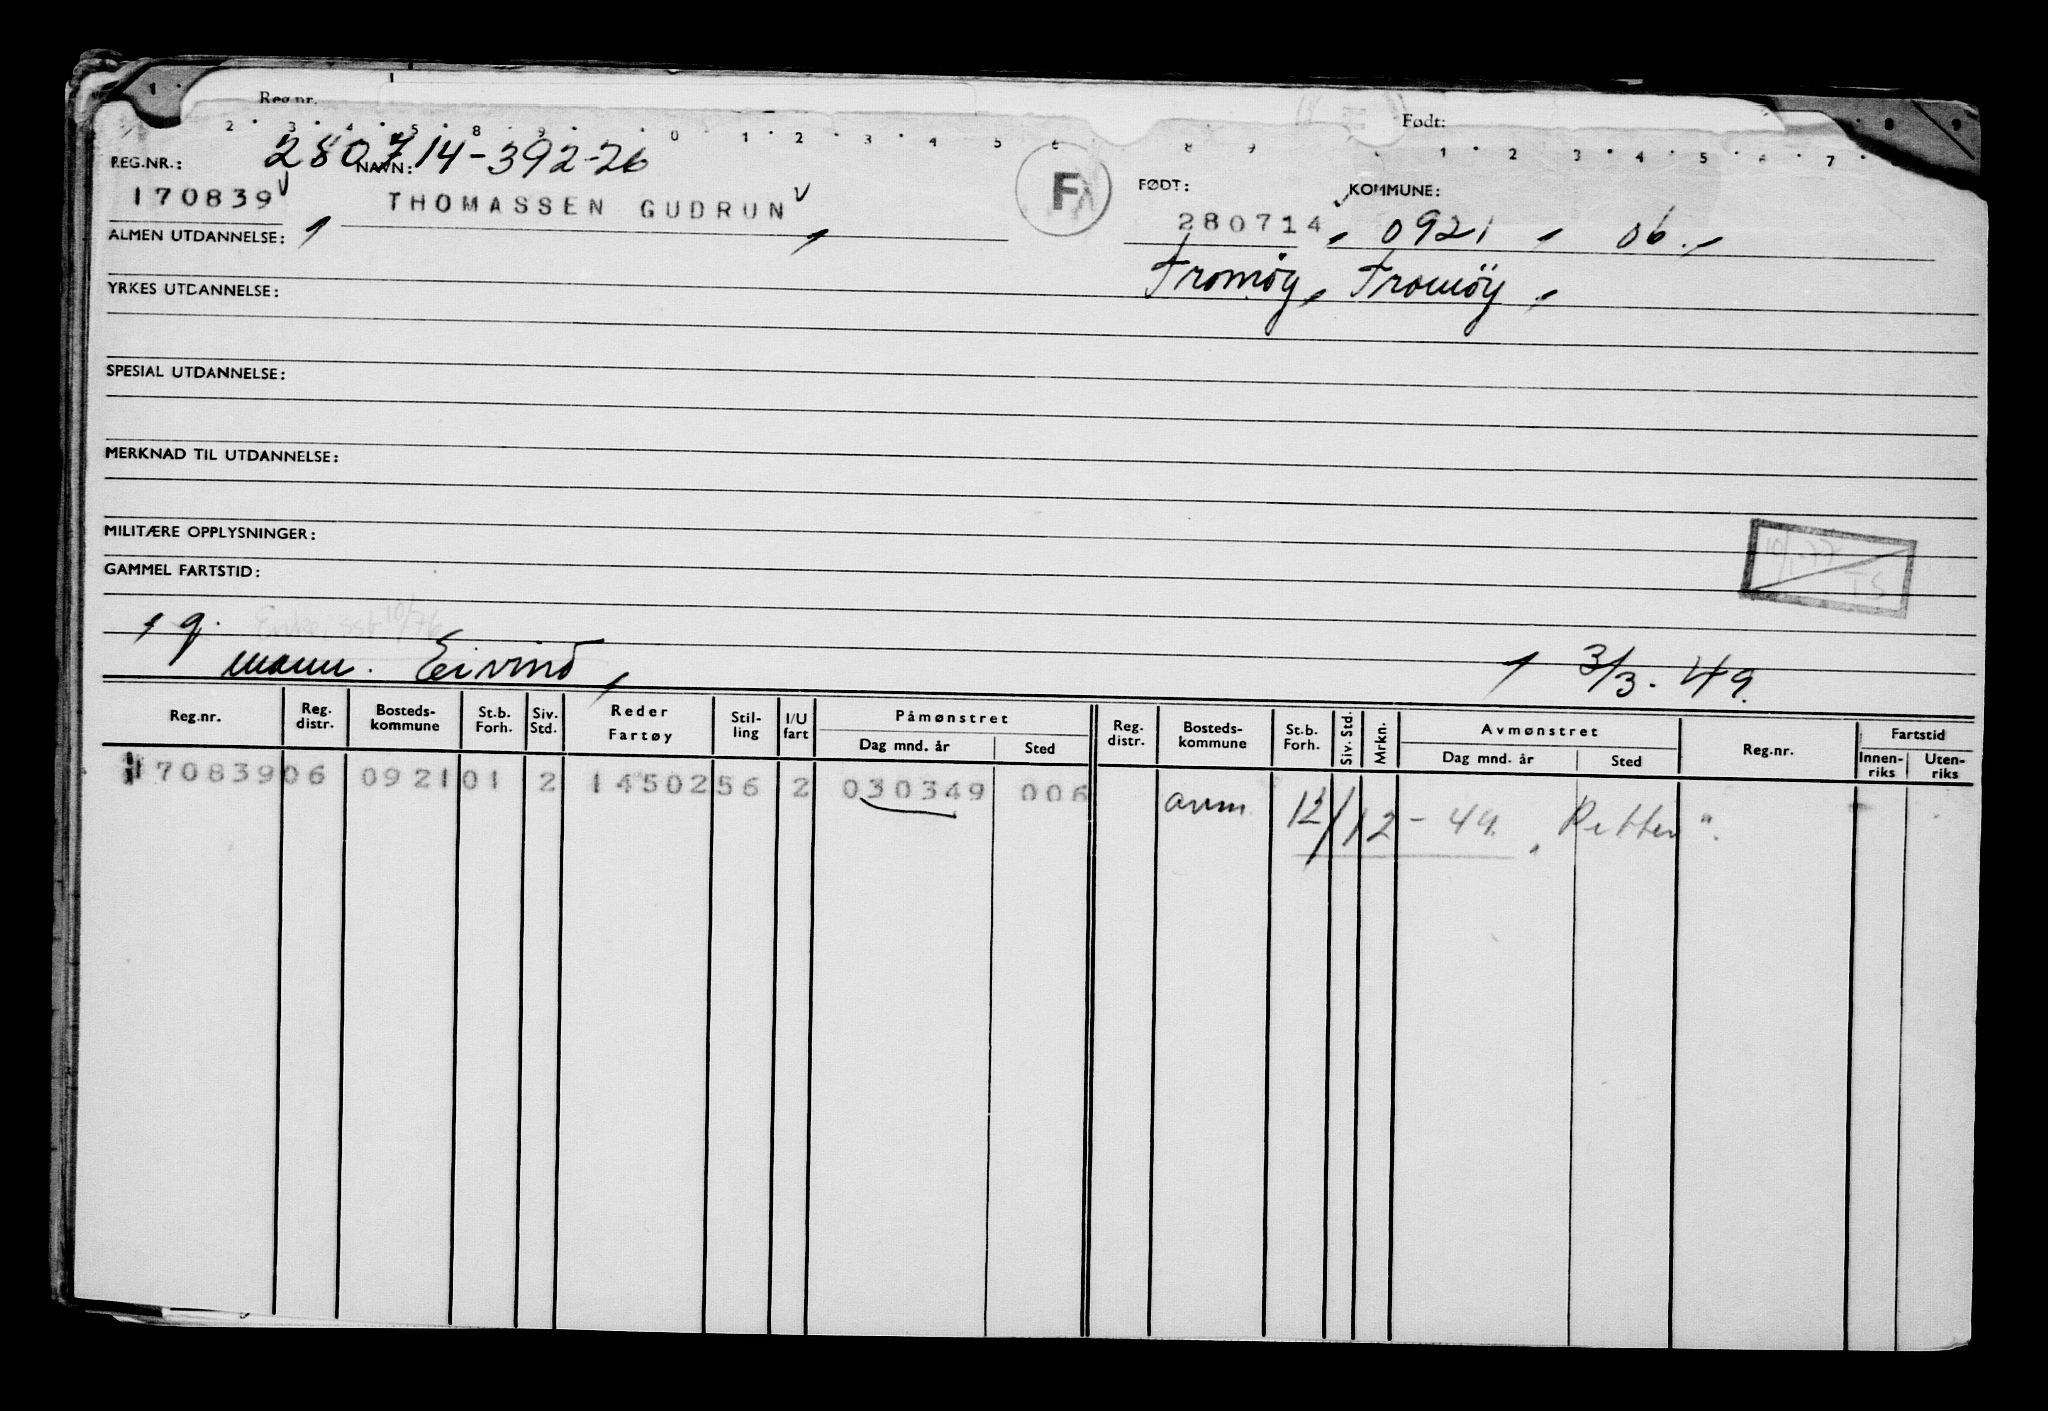 1
Reg.nr.
Født:
2 3 4 5 8 9 0 1 2 3 4 5 6 8 9 1 2 3 4 5 7 8 9
280714-392-26
REG.NR.: NAVN: FØDT: KOMMUNE:
170839 THOMASSEN GUDRUN F 280714 0921 06.
ALMEN UTDANNELSE:
Tromøy, Tromøy,
YRKES UTDANNELSE:
SPESIAL UTDANNELSE:
MERKNAD TIL UTDANNELSE:
MILITÆRE OPPLYSNINGER:
10/1-77
TS
GAMMEL FARTSTID:
g. Enke, sst 10/76
mann. Eivind, 3/3.49.
Reg.nr. Reg. distr. Bosteds-kommune St.b. Forh. Siv. Std. Reder Fartøy Stil-ling I/U fart Påmønstret Reg. distr. Bosteds-kommune St.b. Forh. Siv. Std. Mrkn. Avmønstret Reg.nr. Fartstid
Dag mnd. år Sted Dag mnd. år Sted Innen-riks Uten-riks
170839 06 0921 01 2 14502 56 2 030349 006
avm. 12/12-49. "Petter".